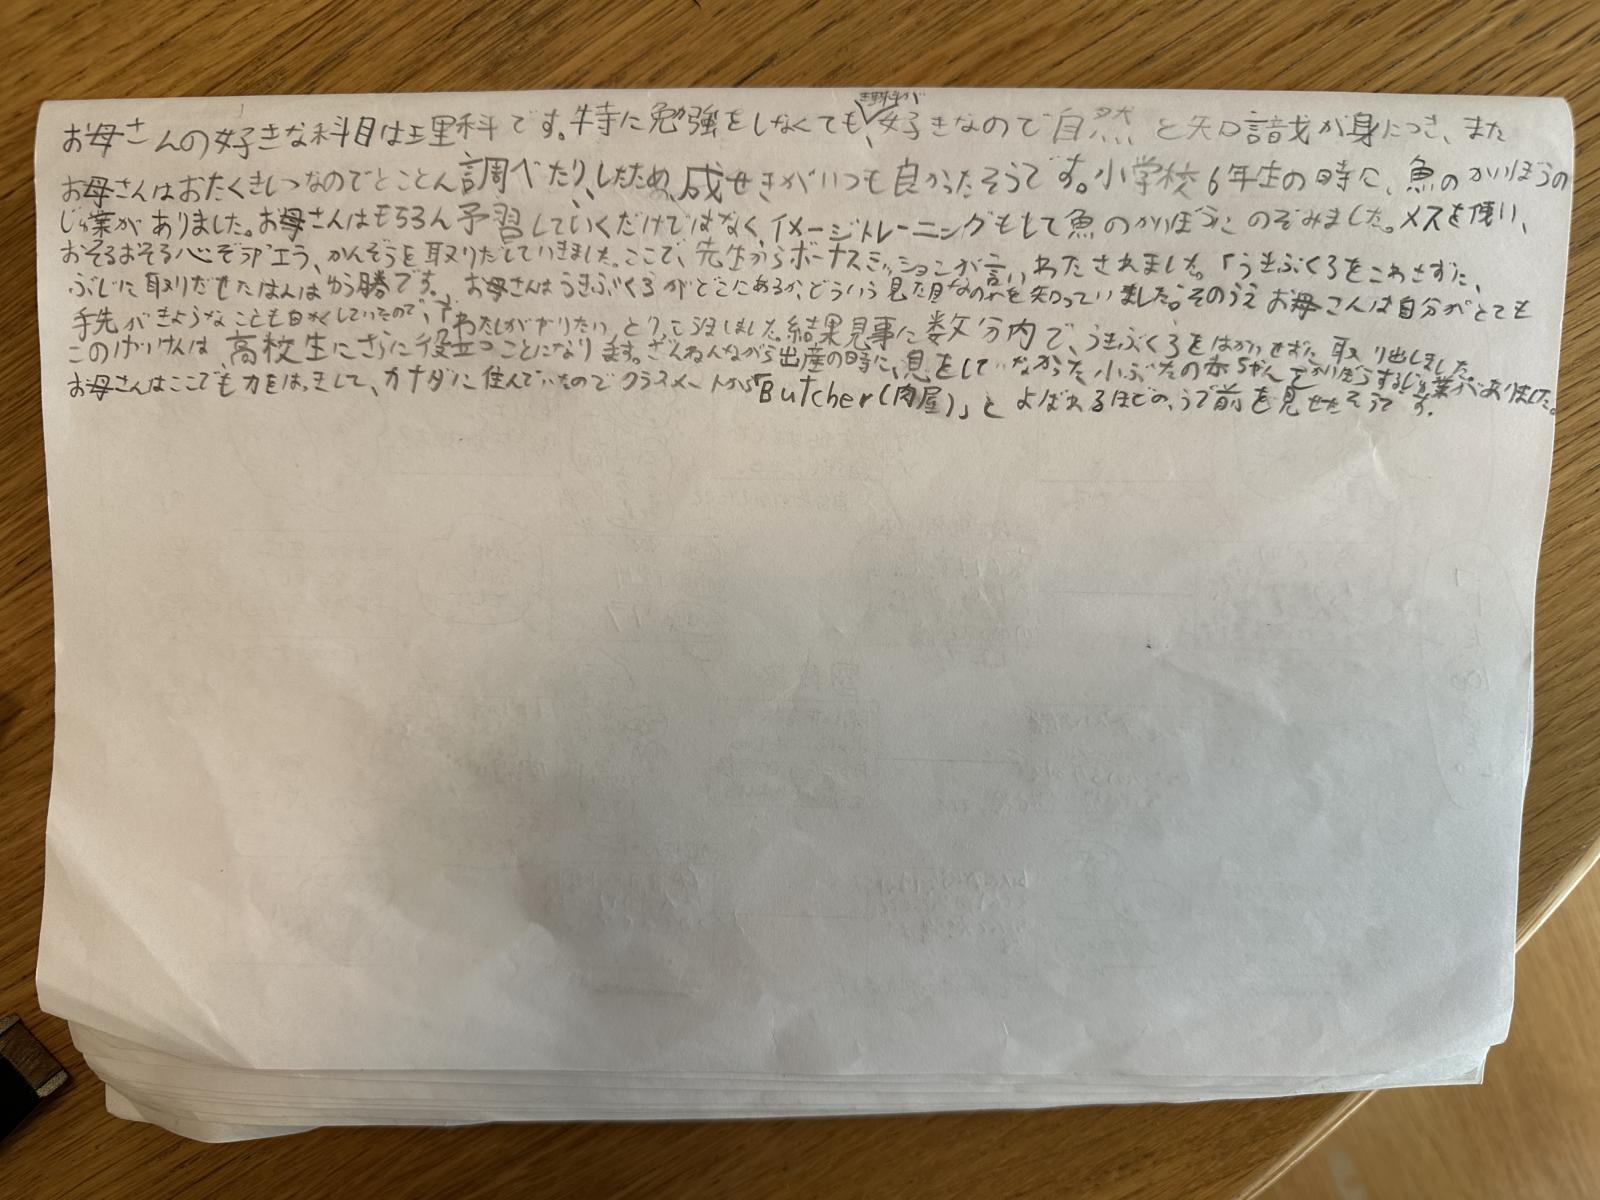 お母さんの好きな科目は理科です。特に勉強をしなくても、理科が好きなので自然と知識が身につき、また
お母さんはおたくきしつなのでとことん調べたり、したため、成せきがいつも良かったそうです。小学校6年生の時に、魚のかいぼうの
じゅ業がありました。お母さんはもちろん予習していくだけではなく、イメージトレーニングもして魚のかいぼうにのぞみました。メスを使い、
おそるおそる心ぞうやえら、かんぞうを取りだしていきました。ここで、先生からボーナスミッションが言いわたされました。「うきぶくろをこわさずに、
ぶじに取りだせたはんはゆう勝です。」お母さんはうきぶくろがどこにあるか、どういう見た目なのかを知っていました。そのうえお母さんは自分がとても
手先がきようなことも自かくしていたので、「わたしがやりたい」とりっこうほしました。結果見事に数分内で、うきぶくろをはかいせずに取り出しました。
このけいけんは、高校生にさらに役立つことになります。ざんねんながら出産の時に、息をしていなかった小ぶたの赤ちゃんをかいぼうするじゅ業がありました。
お母さんはここでも力をはっきして、カナダに住んでいたのでクラスメートから「Butcher(肉屋)」とよばれるほどの、うで前を見せたそうです。